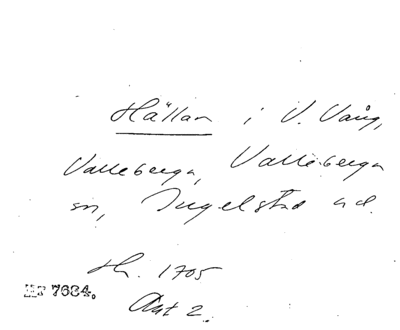 Hällan i V. Vång,
Valleberga, Valleberga
sn, Ingelstad hd.
Hs. 1705
HF 7634.
Akt 2.